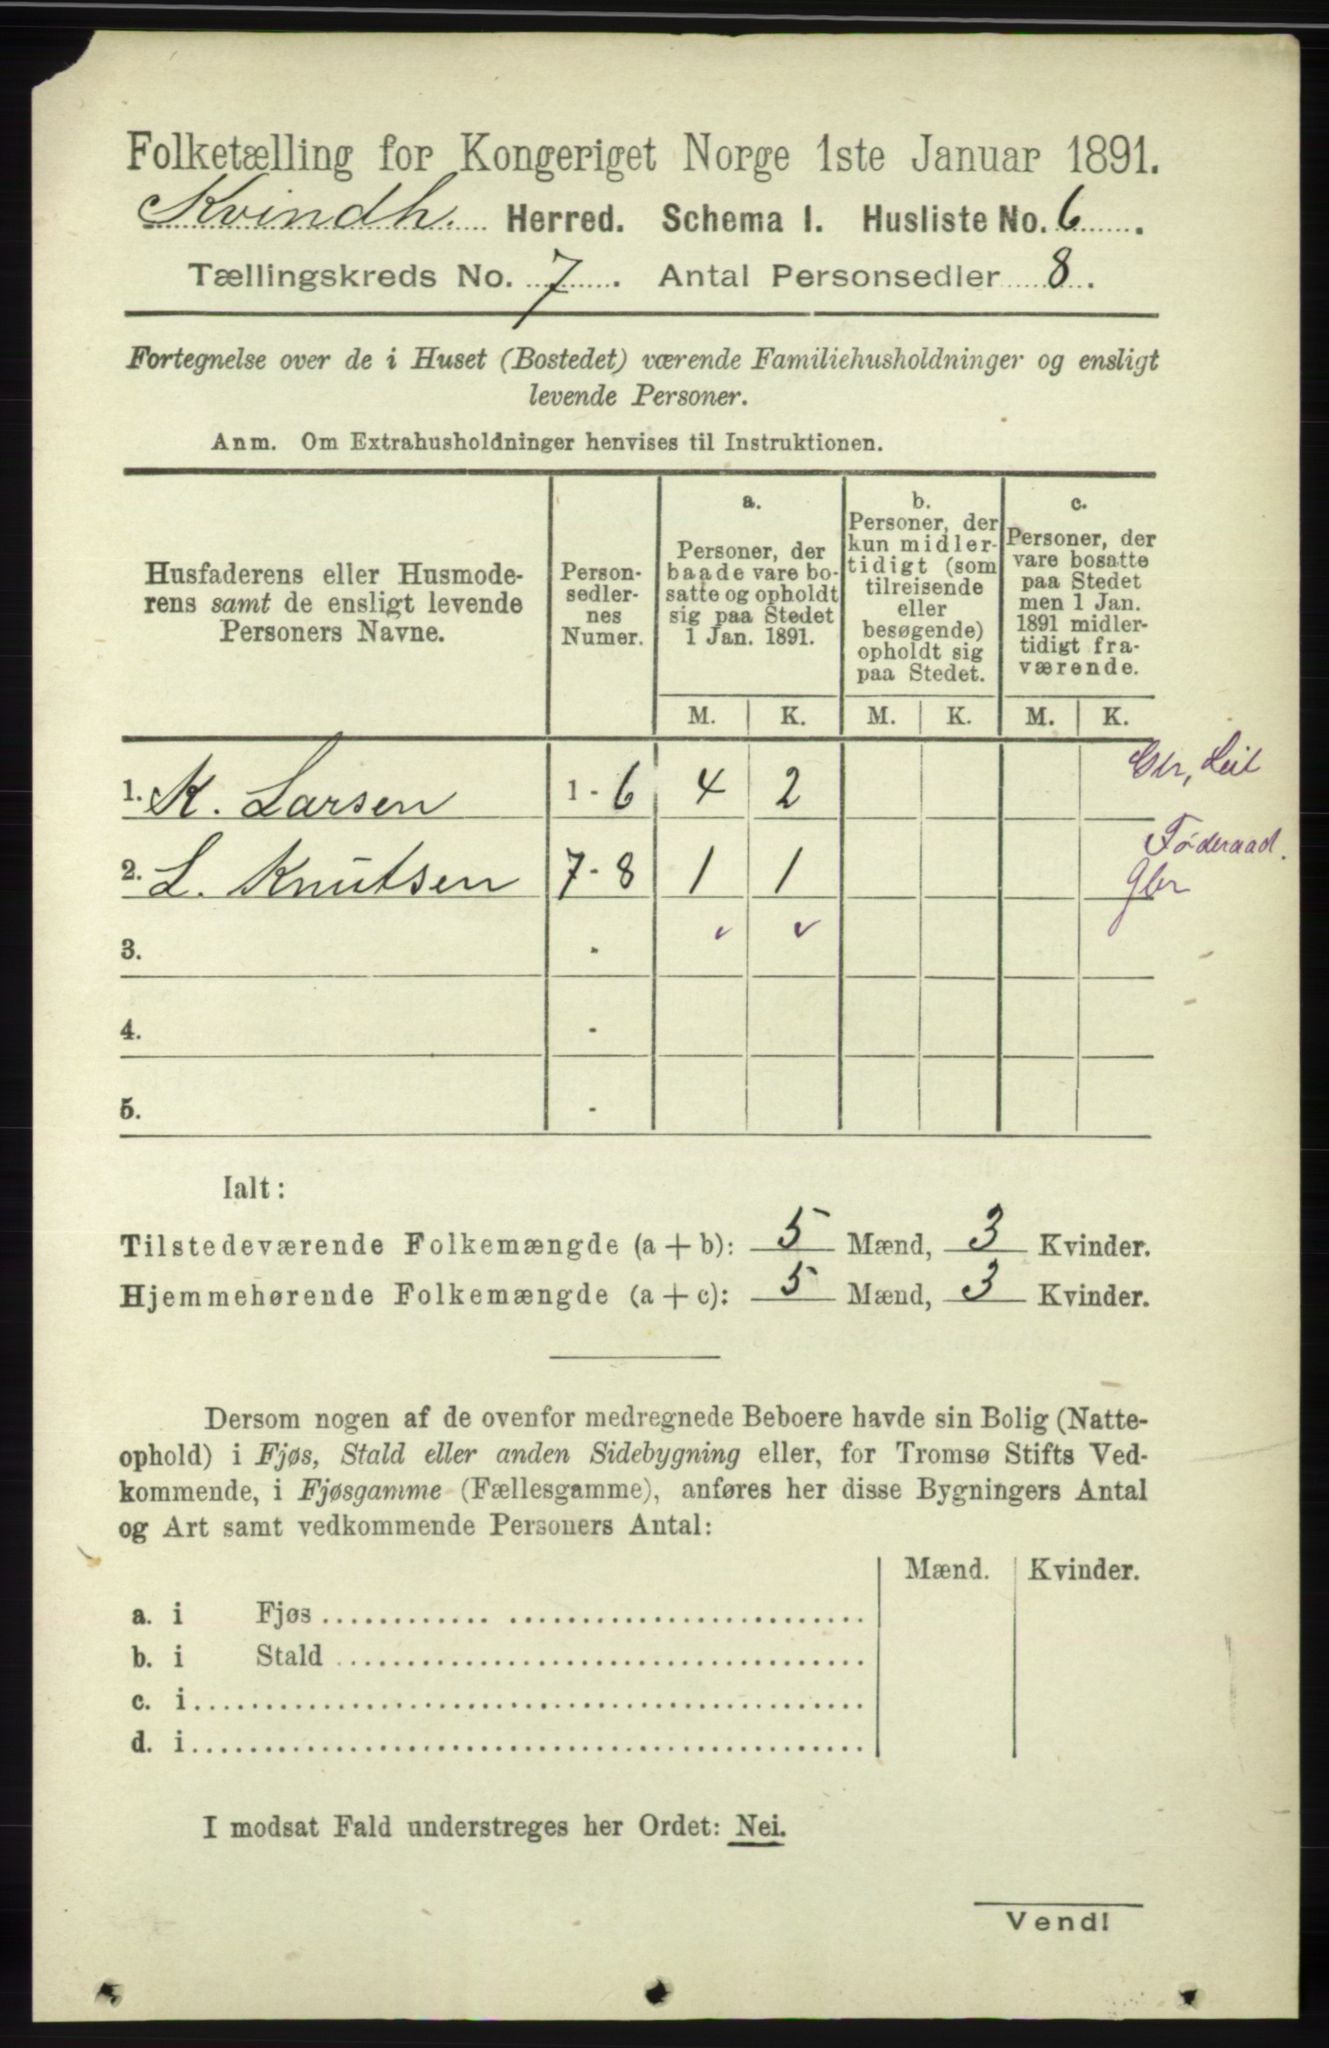 Folketælling for Kongeriget Norge 1ste Januar 1891.
Kvindh. Herred. Schema I. Husliste No. 6.
Tællingskreds No. 7. Antal Personsedler 8.
Fortegnelse over de i Huset (Bostedet) værende Familiehusholdninger og ensligt
levende Personer.
Anm. Om Extrahusholdninger henvises til Instruktionen.
Husfaderens eller Husmode-
rens samt de ensligt levende
Personers Navne.
Person-
sedler-
nes
Numer.
a.
Personer, der
baade vare bo-
satte og opholdt
sig paa Stedet
1 Jan. 1891.
b.
Personer, der
kun midler-
tidigt (som
tilreisende
eller
besøgende)
opholdt sig
paa Stedet.
c.
Personer, der
vare bosatte
paa Stedet
men 1 Jan.
1891 midler-
tidigt fra-
værende.
M. K. M. K. M. K.
1. K. Larsen 1-6 4 2
2. L. Knutsen 7-8 1 1 Føderaad.
3. -
4. -
5. -
Ialt:
Tilstedeværende Folkemængde (a + b): 5 Mænd, 3 Kvinder.
Hjemmehørende Folkemængde (a + c): 5 Mænd, 3 Kvinder.
Dersom nogen af de ovenfor medregnede Beboere havde sin Bolig (Natte-
ophold) i Fjøs, Stald eller anden Sidebygning eller, for Tromsø Stifts Ved-
kommende, i Fjøsgamme (Fællesgamme), anføres her disse Bygningers Antal
og Art samt vedkommende Personers Antal:
Mænd. Kvinder.
a. i Fjøs
b. i Stald
c. i
d. i
I modsat Fald understreges her Ordet: Nei.
Vend!